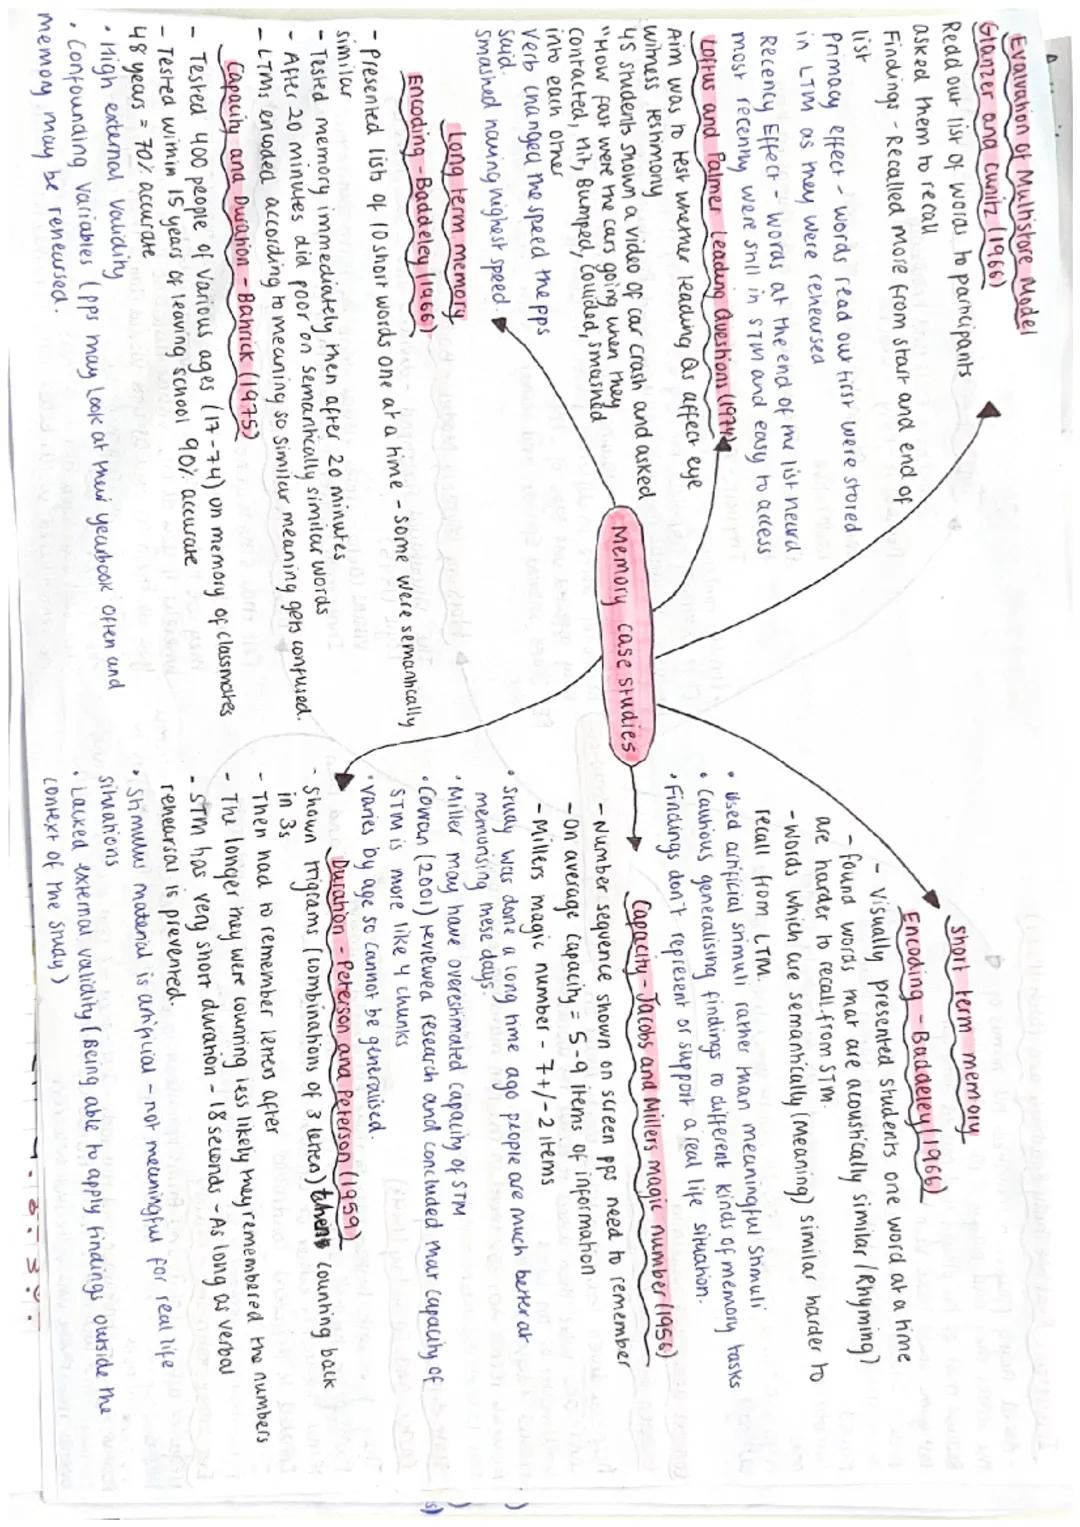 Evaluation of Multistore Model
Glanzer and cunitz (1966)
Read our list of words to participants
asked them to recall
Findings - Recalled more from start and end of
list
Primacy effect - words read out first were stored
in LTM as they were rehearsed
Recency Effect - words at the end of the list heard
most recently were still in STM and easy to access
Loftus and Palmer Leading Questions (1974)
Aim was to test whether leading Qs affect eye
witness testimony
45 students shown a video of car crash and asked
"How fast were the cars going when they
contracted, Hit, Bumped, Collided, smashed
into each other
Verb changed the speed the pps
said.
Smashed having highest speed.
Long term memory
Encoding - Baddeley (1966)
- Presented list of 10 short words one at a time - some were semantically
similar
- Tested memory immediately then after 20 minutes
- After 20 minutes did poor on semantically similar words
- LTMs encoded according to meaning so similar meaning gets confused.
Capacity and Duration - Bahrick (1975)
- Tested 400 people of various ages (17-74) on memory of classmates
- Tested within 15 years of leaving school 90% accurate
48 years = 70% accurate
• High external validity
• Confounding variables (pps may look at their yearbook often and
memory may be rehearsed.
Memory case studies
Short term memory
Encoding - Baddeley (1966)
- Visually presented students one word at a time
- found words that are acoustically similar (Rhyming)
are harder to recall from STM.
- Words which are semantically (meaning) similar harder to
recall from LTM.
• Used artificial stimuli rather than meaningful stimuli
• Cautious generalising findings to different kinds of memory tasks
• Findings don't represent or support a real life situation.
Capacity - Jacobs and Millers magic number (1956)
- Number sequence shown on screen pps need to remember
- On average capacity = 5-9 items of information
- Millers magic number - 7+/-2 items
• Study was done a long time ago people are much better at
memorising these days.
• Miller may have overestimated capacity of STM
• Cowan (2001) reviewed research and concluded that capacity of
STM is more like 4 chunks
• Varies by age so cannot be generalised.
Duration - Peterson and Peterson (1959)
- Shown trigrams (combinations of 3 letters) then counting back
in 3s
- Then had to remember letters after
- The longer they were counting less likely they remembered the numbers
- STM has very short duration - 18 seconds - As long as verbal
rehearsal is prevented.
• Stimulus material is artificial - not meaningful for real life
situations
• Lacked external validity (Being able to apply findings outside the
context of the study)